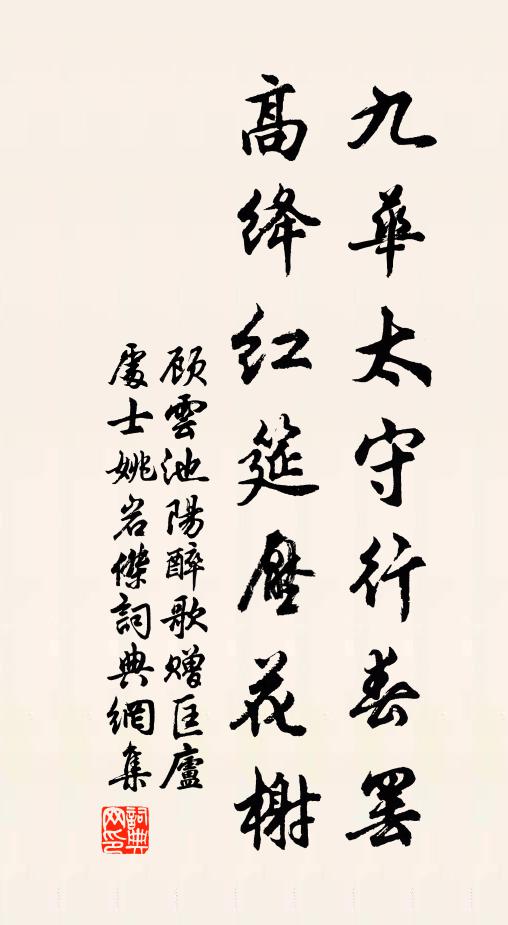 九華太守行春罷
高絳紅筵壓花榭
顾雲池陽醉歌赠匡廬
處士姚岩傑詞典網集
詞典網印